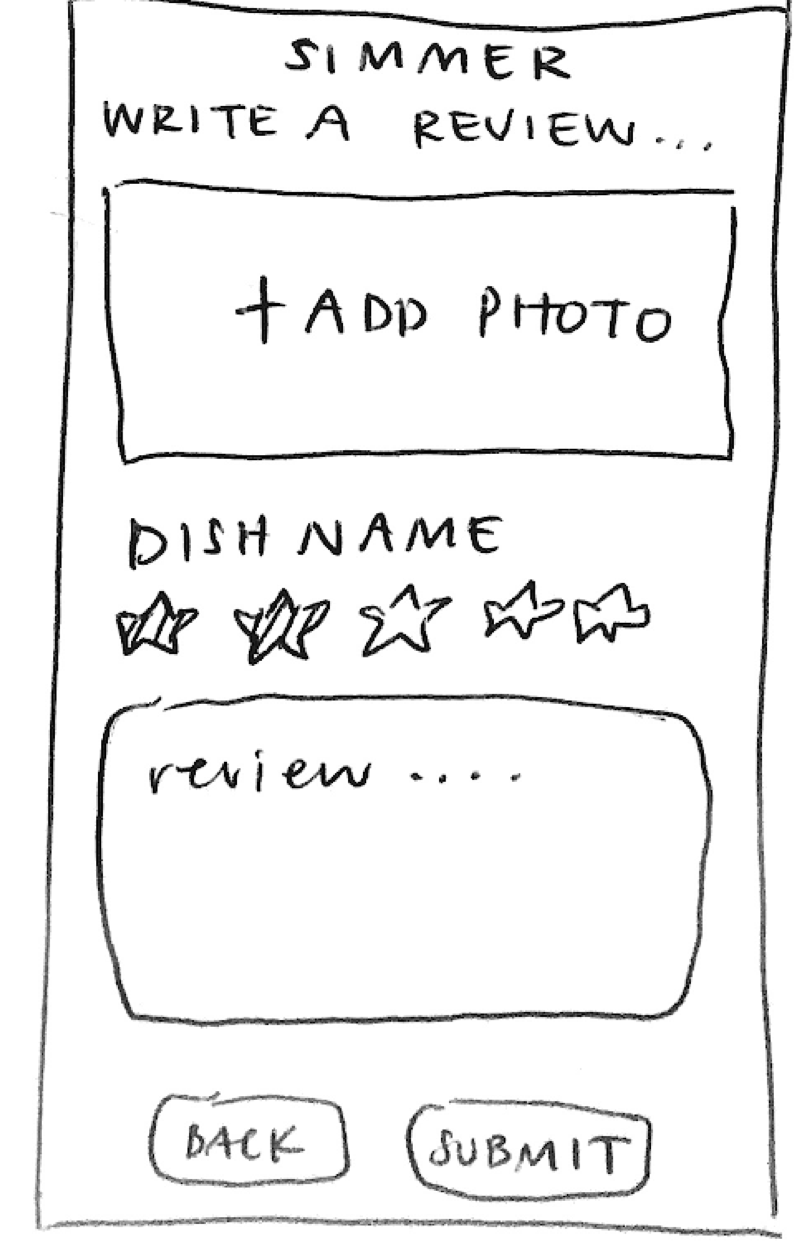 SIMMER
WRITE A REVIEW...
+ ADD PHOTO
DISH NAME
review ....
BACK
SUBMIT